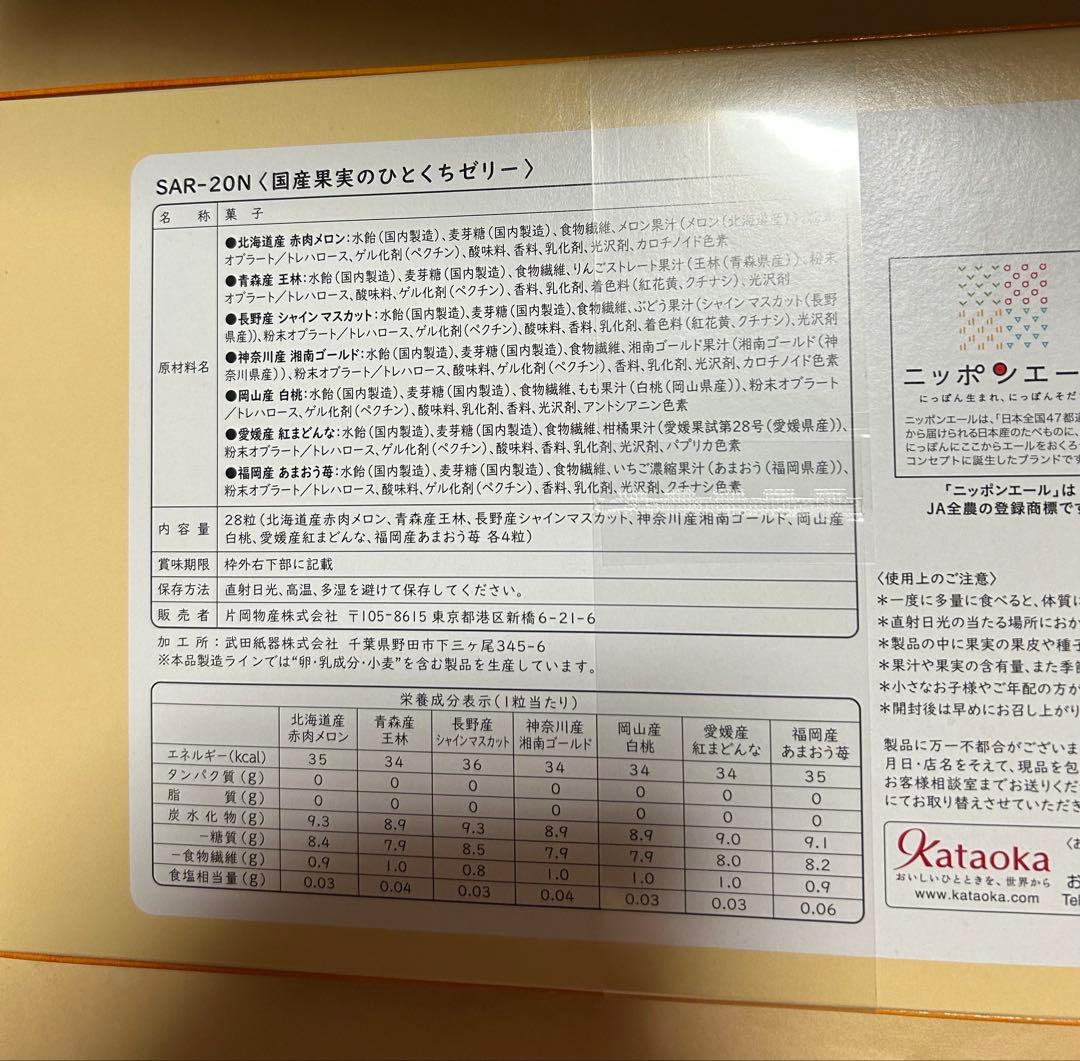 SAR-20N〈国産果実のひとくちゼリー〉
名称 菓子
原材料名
●北海道産 赤肉メロン:水飴(国内製造)、麦芽糖(国内製造)、食物繊維、メロン果汁(メロン(北海道産))、粉末
オブラート/トレハロース、ゲル化剤(ペクチン)、酸味料、香料、乳化剤、光沢剤、カロチノイド色素
●青森産 王林:水飴(国内製造)、麦芽糖(国内製造)、食物繊維、りんごストレート果汁(王林(青森県産))、粉末
オブラート/トレハロース、酸味料、ゲル化剤(ペクチン)、香料、乳化剤、着色料(紅花黄、クチナシ)、光沢剤
●長野産 シャインマスカット:水飴(国内製造)、麦芽糖(国内製造)、食物繊維、ぶどう果汁(シャインマスカット(長野
県産))、粉末オブラート/トレハロース、ゲル化剤(ペクチン)、酸味料、香料、乳化剤、着色料(紅花黄、クチナシ)、光沢剤
●神奈川産 湘南ゴールド:水飴(国内製造)、麦芽糖(国内製造)、食物繊維、湘南ゴールド果汁(湘南ゴールド(神
奈川県産))、粉末オブラート/トレハロース、酸味料、ゲル化剤(ペクチン)、香料、乳化剤、光沢剤、カロチノイド色素
●岡山産 白桃:水飴(国内製造)、麦芽糖(国内製造)、食物繊維、もも果汁(白桃(岡山県産))、粉末オブラート
/トレハロース、ゲル化剤(ペクチン)、酸味料、乳化剤、香料、光沢剤、アントシアニン色素
●愛媛産 紅まどんな:水飴(国内製造)、麦芽糖(国内製造)、食物繊維、柑橘果汁(愛媛果試第28号(愛媛県産))、
粉末オブラート/トレハロース、ゲル化剤(ペクチン)、酸味料、香料、乳化剤、光沢剤、パプリカ色素
●福岡産 あまおう苺:水飴(国内製造)、麦芽糖(国内製造)、食物繊維、いちご濃縮果汁(あまおう(福岡県産))、
粉末オブラート/トレハロース、酸味料、ゲル化剤(ペクチン)、香料、乳化剤、光沢剤、クチナシ色素
内容量 28粒(北海道産赤肉メロン、青森産王林、長野産シャインマスカット、神奈川産湘南ゴールド、岡山産
白桃、愛媛産紅まどんな、福岡産あまおう苺 各4粒)
賞味期限 枠外右下部に記載
保存方法 直射日光、高温、多湿を避けて保存してください。
販売者 片岡物産株式会社 〒105-8615 東京都港区新橋6-21-6
加工所:武田紙器株式会社 千葉県野田市下三ヶ尾345-6
※本品製造ラインでは“卵・乳成分・小麦”を含む製品を生産しています。
栄養成分表示(1粒当たり)
北海道産 青森産 長野産 神奈川産 岡山産 愛媛産 福岡産
赤肉メロン 王林 シャインマスカット 湘南ゴールド 白桃 紅まどんな あまおう苺
エネルギー(kcal) 35 34 36 34 34 34 35
タンパク質(g) 0 0 0 0 0 0 0
脂質(g) 0 0 0 0 0 0 0
炭水化物(g) 9.3 8.9 9.3 8.9 8.9 9.0 9.1
-糖質(g) 8.4 7.9 8.5 7.9 7.9 8.0 8.2
-食物繊維(g) 0.9 1.0 0.8 1.0 1.0 1.0 0.9
食塩相当量(g) 0.03 0.04 0.03 0.04 0.03 0.03 0.06
ニッポンエー
にっぽん生まれ、にっぽんそだ
ニッポンエールは、「日本全国47都道
から届けられる日本産のたべものに、
にっぽんにここからエールをおくろ
コンセプトに誕生したブランドです
「ニッポンエール」は
JA全農の登録商標です
〈使用上のご注意〉
*一度に多量に食べると、体質に
*直射日光の当たる場所におか
*製品の中に果実の果皮や種子
*果汁や果実の含有量、また季節
*小さなお子様やご年配の方が
*開封後は早めにお召し上がり
製品に万一不都合がございま
月日・店名をそえて、現品を包
お客様相談室までお送りくだ
にてお取り替えさせていただき
Kataoka
おいしいひとときを、世界から
www.kataoka.com
〈お
お
Tel